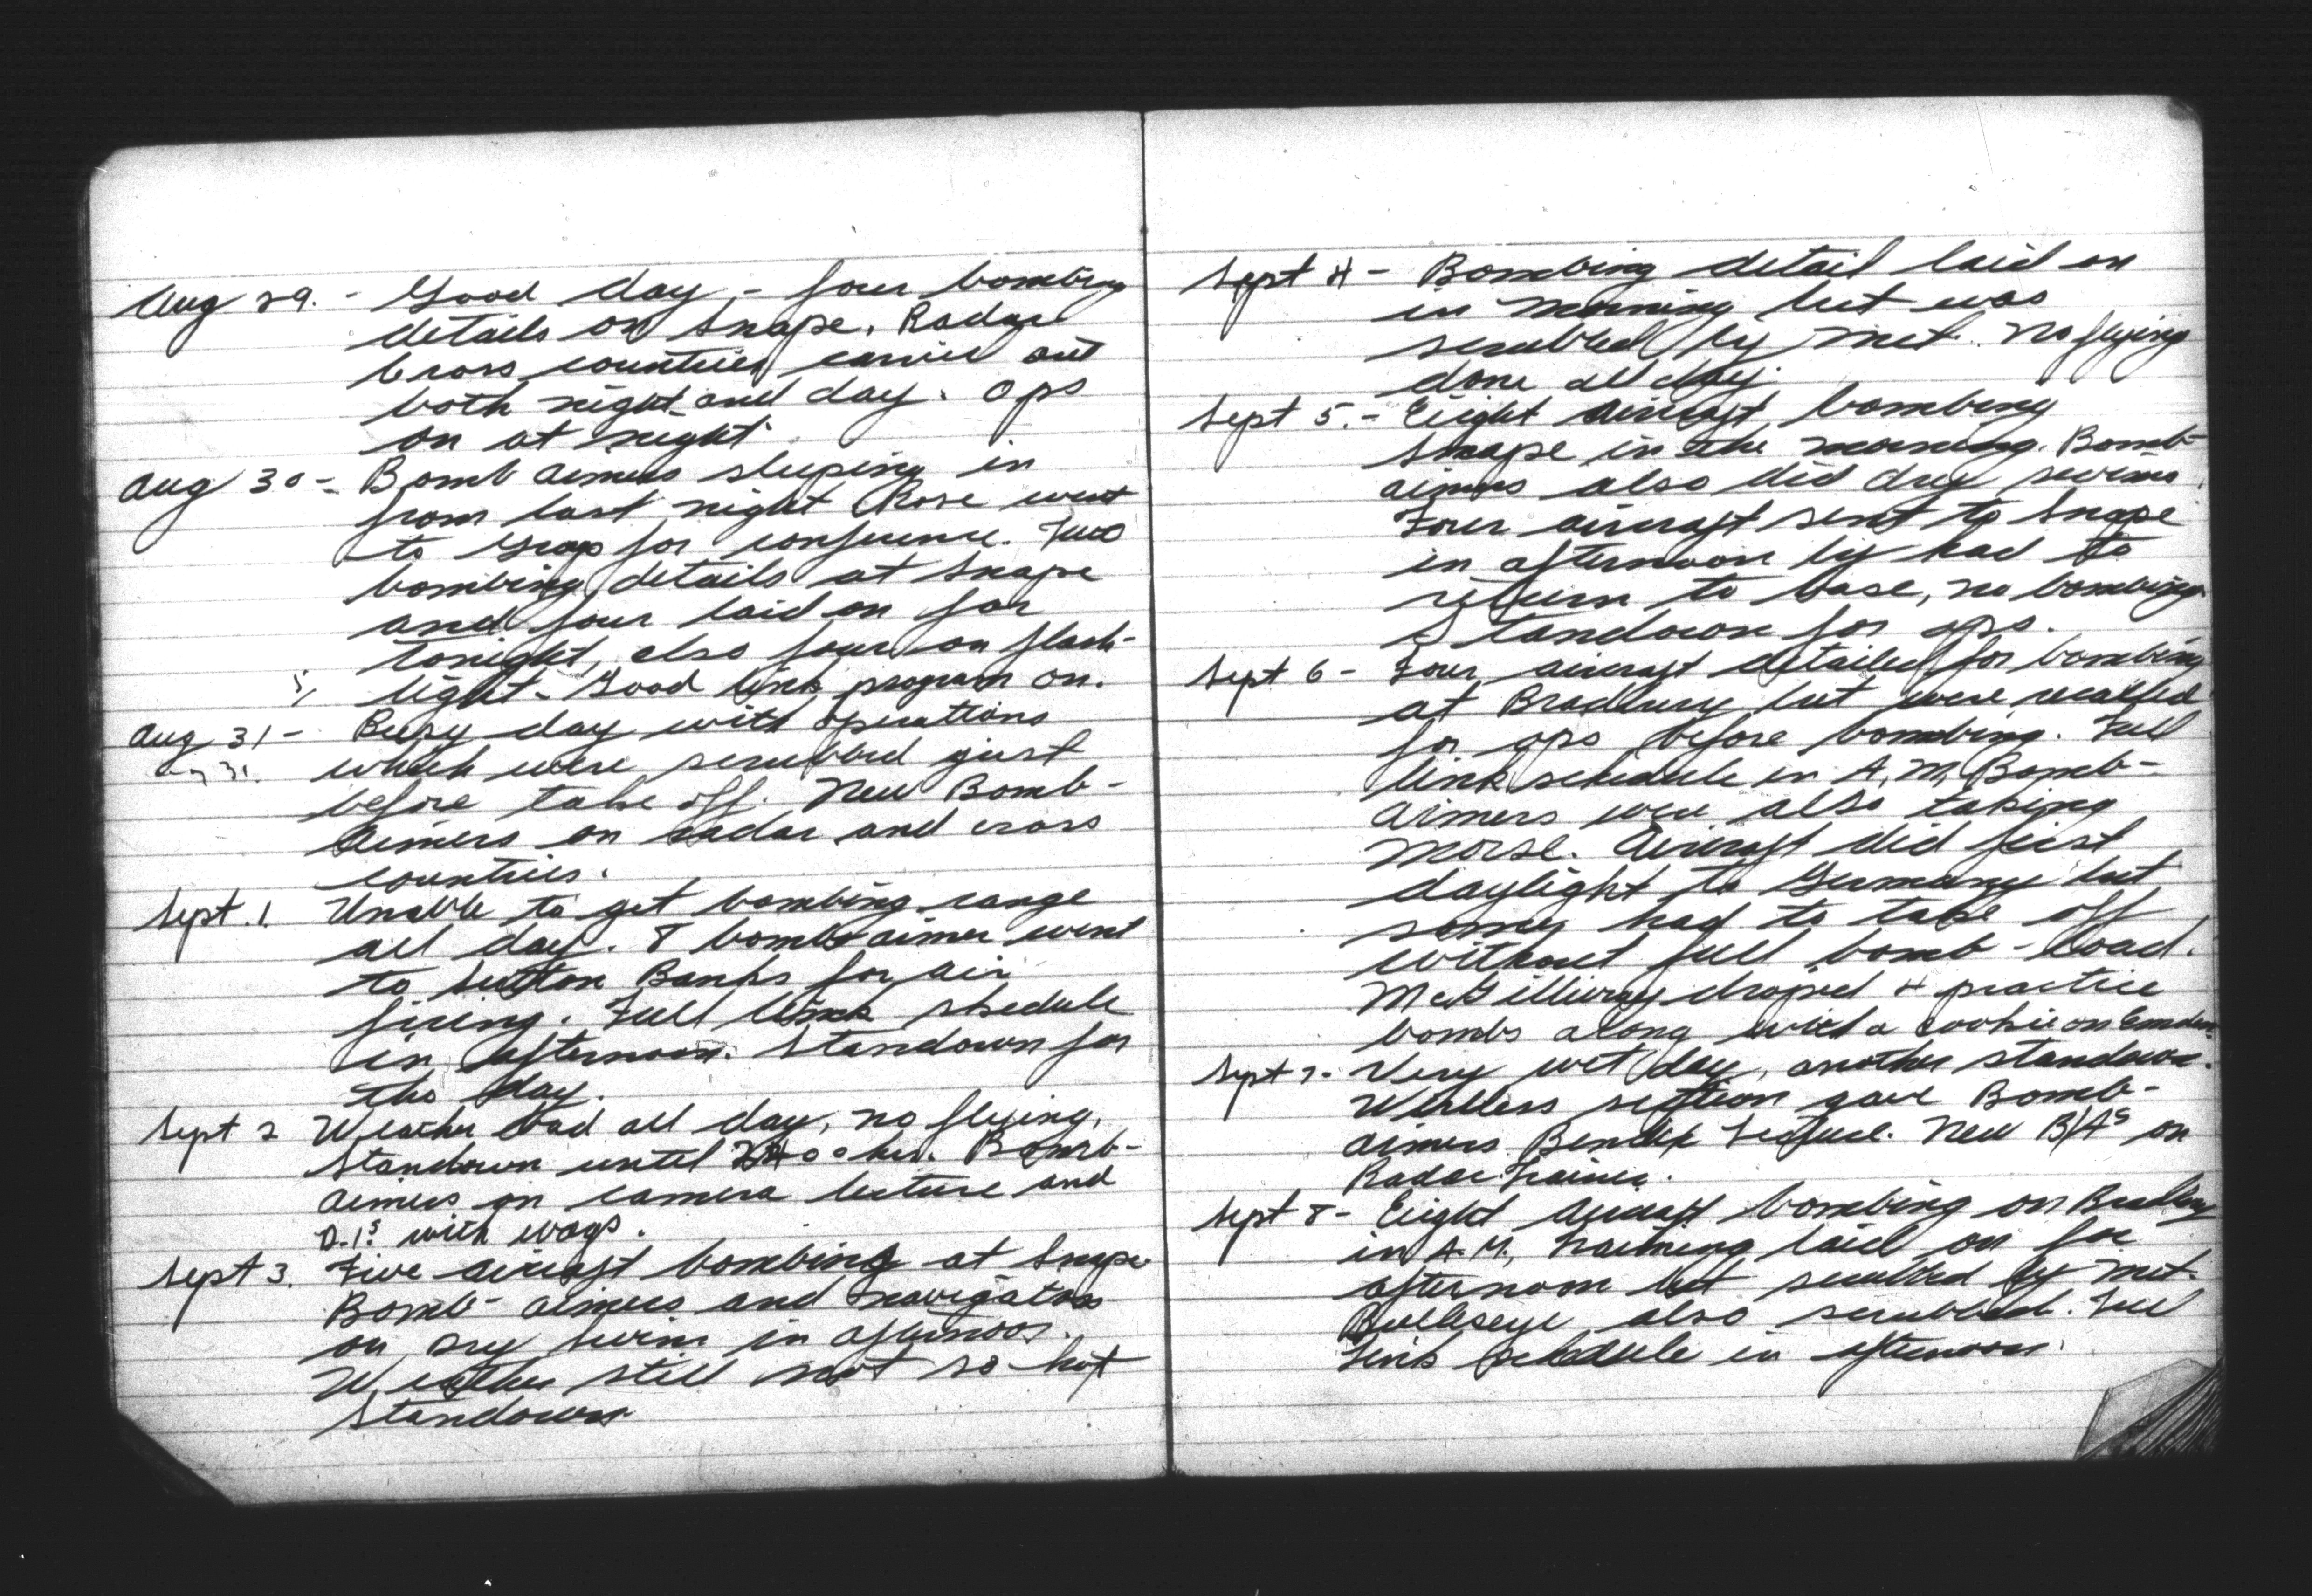 Aug 29. - Good day, - four bombing
details on Snape. Radar
Cross countries carried out
both night and day. Ops
on at night.
Aug 30 - Bomb aimers sleeping in
from last night Rose went
to Group for conference. Two
bombing details at Snape
and four laid on for
tonight, also four on flash-
light. Good link program on.
Aug 31 - Busy day with operations
which were scrubbed just
before take off. New Bomb-
Aimers on radar and cross
countries.
Sept. 1. Unable to get bombing range
all day. 8 bomb aimer went
to Sutton Banks for air
firing. Full link shedule
in afternoon. Standown for
the day.
Sept 2 Weather bad all day, no flying,
Standown until 2400 hrs. Bomb-
aimers on camera lecture and
D.I.s with wags.
Sept 3. Five aircraft bombing at Snape
Bomb-aimers and navigators
on dry swim in afternoon.
Weather still not so hot
Standown
Sept 4 - Bombing detail laid on
in morning but was
scrubbed by met. No flying
done all day.
Sept 5. - Eight aircraft bombing
Snape in the morning. Bomb-
aimers also did dry swims.
Four aircraft sent to Snape
in afternoon by had to
return to base, no bombing.
Standown for ops.
Sept 6 - Four aircraft detailed for bombing
at Bradbury but were recalled
for ops before bombing. Full
link schedule in A.M. Bomb-
Aimers were also taking
Morse. Aircraft did first
daylight to Germany but
some had to take off
without full bomb-load.
McGillivray droped 4 practice
bombs along with a cookie on Emden.
Sept 7 - Very wet day, another standown.
Wireless section gave Bomb-
aimers Bendix lecture. New B/As on
Radar Trainer.
Sept 8 - Eight Aircraft bombing on Bradbury
in A.M., Training laid on for
afternoon but scrubbed by met.
Bullseye also scrubbed. Full
Link schedule in afternoon.